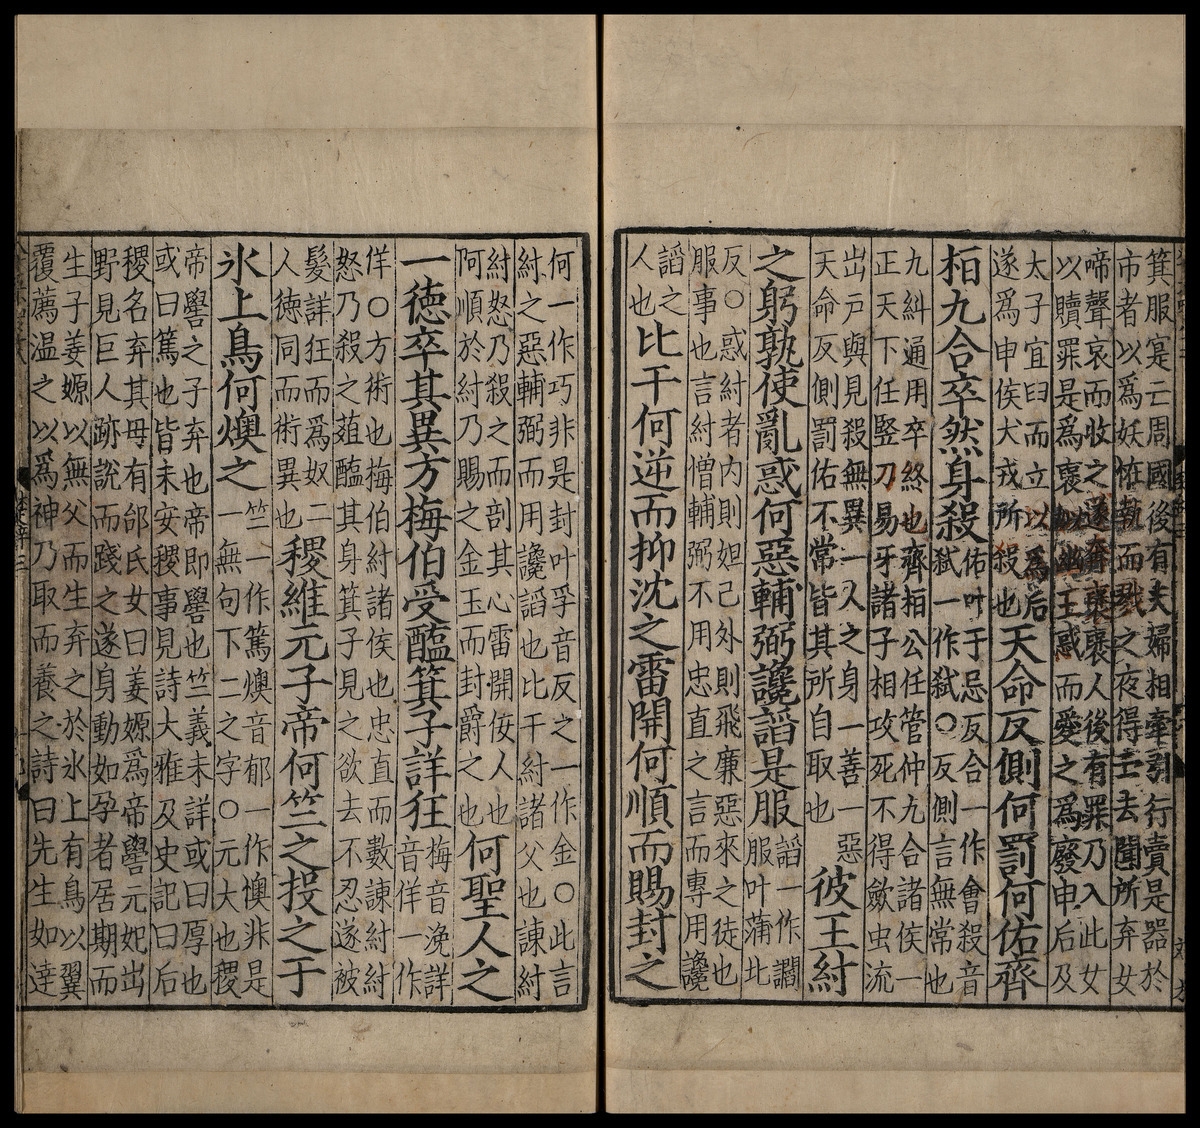 箕服寔亡周國後有夫婦相牽引行賣是器於
市者以爲妖恠執而戮之夜得亡去聞所弃女
啼聲哀而收之遂奔襃襃人後有罪乃入此女
以贖罪是爲襃姒幽王惑而愛之爲廢申后及
太子宜臼而立以爲后
遂爲申侯犬戎所殺也
天命反側何罰何佑齊
桓九合卒然身殺
佑叶于忌反合一作會殺音
弑一作弑〇反側言無常也
九糾通用卒終也齊桓公任管仲九合諸侯一
正天下任竪刀易牙諸子相攻死不得歛虫流
出戶與見殺無異一人之身一善一惡
天命反側罰佑不常皆其所自取也
彼王紂
之躬孰使亂惑何惡輔弼讒謟是服
謟一作讇
服叶蒲北
反〇惑紂者内則妲己外則飛廉惡來之徒也
服事也言紂憎輔弼不用忠直之言而專用讒
謟之
人也
比干何逆而抑沈之雷開何順而賜封之
何一作巧非是封叶孚音反之一作金〇此言
紂之惡輔弼而用讒謟也比干紂諸父也諫紂
紂怒乃殺之而剖其心雷開佞人也
阿順於紂乃賜之金玉而封爵之也
何聖人之
一德卒其異方梅伯受醢箕子詳狂
梅音浼詳
音佯一作
佯〇方術也梅伯紂諸侯也忠直而數諫紂紂
怒乃殺之葅醢其身箕子見之欲去不忍遂被
髮詳狂而爲奴二
人德同而術異也
稷維元子帝何竺之投之于
氷上鳥何燠之
竺一作篤燠音郁一作懊非是
一無句下二之字〇元大也稷
帝嚳之子弃也帝即嚳也竺義未詳或曰厚也
或曰篤也皆未安稷事見詩大雅及史記曰后
稷名弃其母有邰氏女曰姜嫄爲帝嚳元妃出
野見巨人跡說而踐之遂身動如孕者居期而
生子姜嫄以無父而生弃之於氷上有鳥以翼
覆薦温之以爲神乃取而養之詩曰先生如達